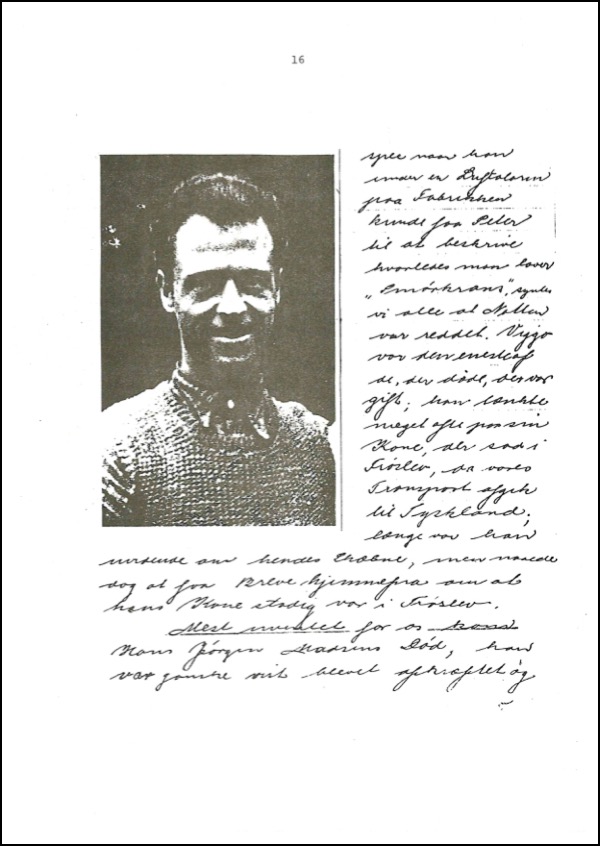 16
spee naar han
under en Luftalarm
paa Fabrikken
kunde faa Peter
til at beskrive
hvorledes man laver
"Smörkrans", syntes
vi alle at Natten
var reddet. Viggo
var den eneste af
de, der döde, der var
gift; han tænkte
meget ofte paa sin
Kone, der sad i
Fröslev, da vores
Transport afgik
til Tyskland;
længe var han
uvidende om hendes Skæbne, men naaede
dog at faa Breve hjemmefra om at
hans Kone stadig var i Fröslev.
Mest uventet for os
Hans Jörgen Madsens Död, han
var ganske vist blevet afkræftet og